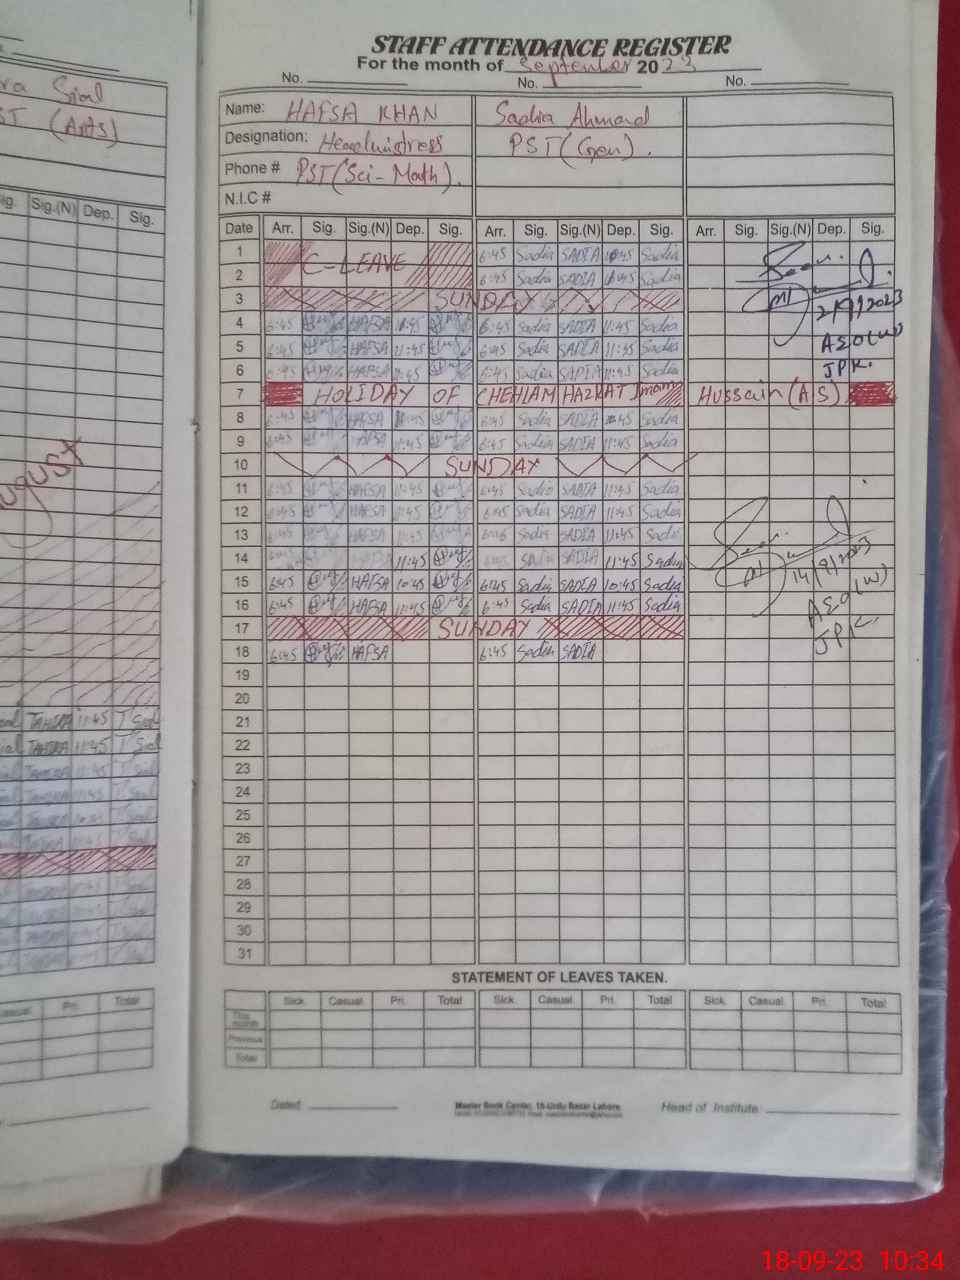 STAFF ATTENDANCE REGISTER
For the month of September 2023
No. No. No.
Name: HAFSA KHAN Sadia Ahmad
Designation: Headmistress PST (Gen).
Phone # PST (Sci-Math).
N.I.C #
Date Arr. Sig. Sig.(N) Dep. Sig. Arr. Sig. Sig.(N) Dep. Sig. Arr. Sig. Sig.(N) Dep. Sig.
1 C-LEAVE 6:45 Sadia SADIA Sadia
2 6:45 Sadia SADIA Sadia
3 SUNDAY
4 6:45 HAFSA 11:45 6:45 Sadia SADIA 11:45 Sadia
5 6:45 HAFSA 11:45 6:45 Sadia SADIA 11:45 Sadia
6 6:45 HAFSA 11:45 6:45 Sadia SADIA 11:45 Sadia
7 HOLIDAY OF CHEHLAM HAZRAT Imam Hussain (A.S)
8 6:45 HAFSA 11:45 6:45 Sadia SADIA 11:45 Sadia
9 6:45 HAFSA 11:45 6:45 Sadia SADIA 11:45 Sadia
10 SUNDAY
11 6:45 HAFSA 11:45 6:45 Sadia SADIA 11:45 Sadia
12 6:45 HAFSA 11:45 6:45 Sadia SADIA 11:45 Sadia
13 6:45 HAFSA 11:45 6:45 Sadia SADIA 11:45 Sadia
14 HAFSA 11:45 Sadia SADIA 11:45 Sadia
15 6:45 HAFSA 10:45 6:45 Sadia SADIA 10:45 Sadia
16 6:45 HAFSA 11:45 6:45 Sadia SADIA 11:45 Sadia
17 SUNDAY
18 6:45 HAFSA 6:45 Sadia SADIA
19
20
21
22
23
24
25
26
27
28
29
30
31
2/9/2023
AEO(W)
JPK.
14/9/2023
AEO(W)
JPK.
STATEMENT OF LEAVES TAKEN.
Sick. Casual Pri. Total Sick. Casual Pri. Total Sick. Casual Pri. Total
This month
Previous
Total
Dated: Master Book Center, 16-Urdu Bazar Lahore Head of Institute:
Sial
(Arts)
Sig. Sig.(N) Dep. Sig.
August
TAHIRA 11:45 Sial
TAHIRA 11:45 Sial
Casual Pri. Total
18-09-23 10:34